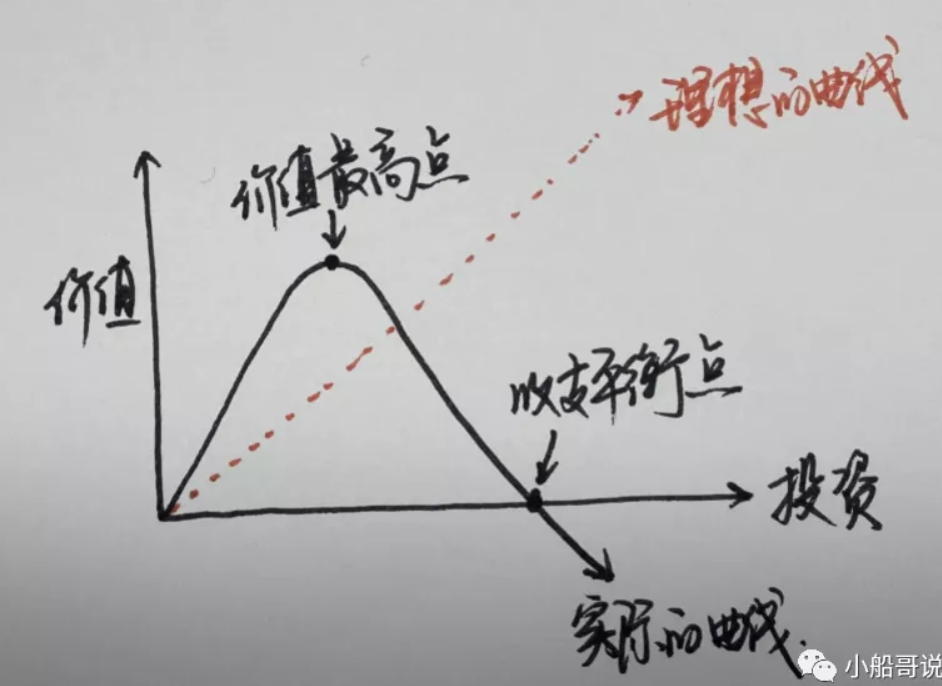 理想的曲线
价值最高点
价值
收支平衡点
投资
实际的曲线
小船哥说